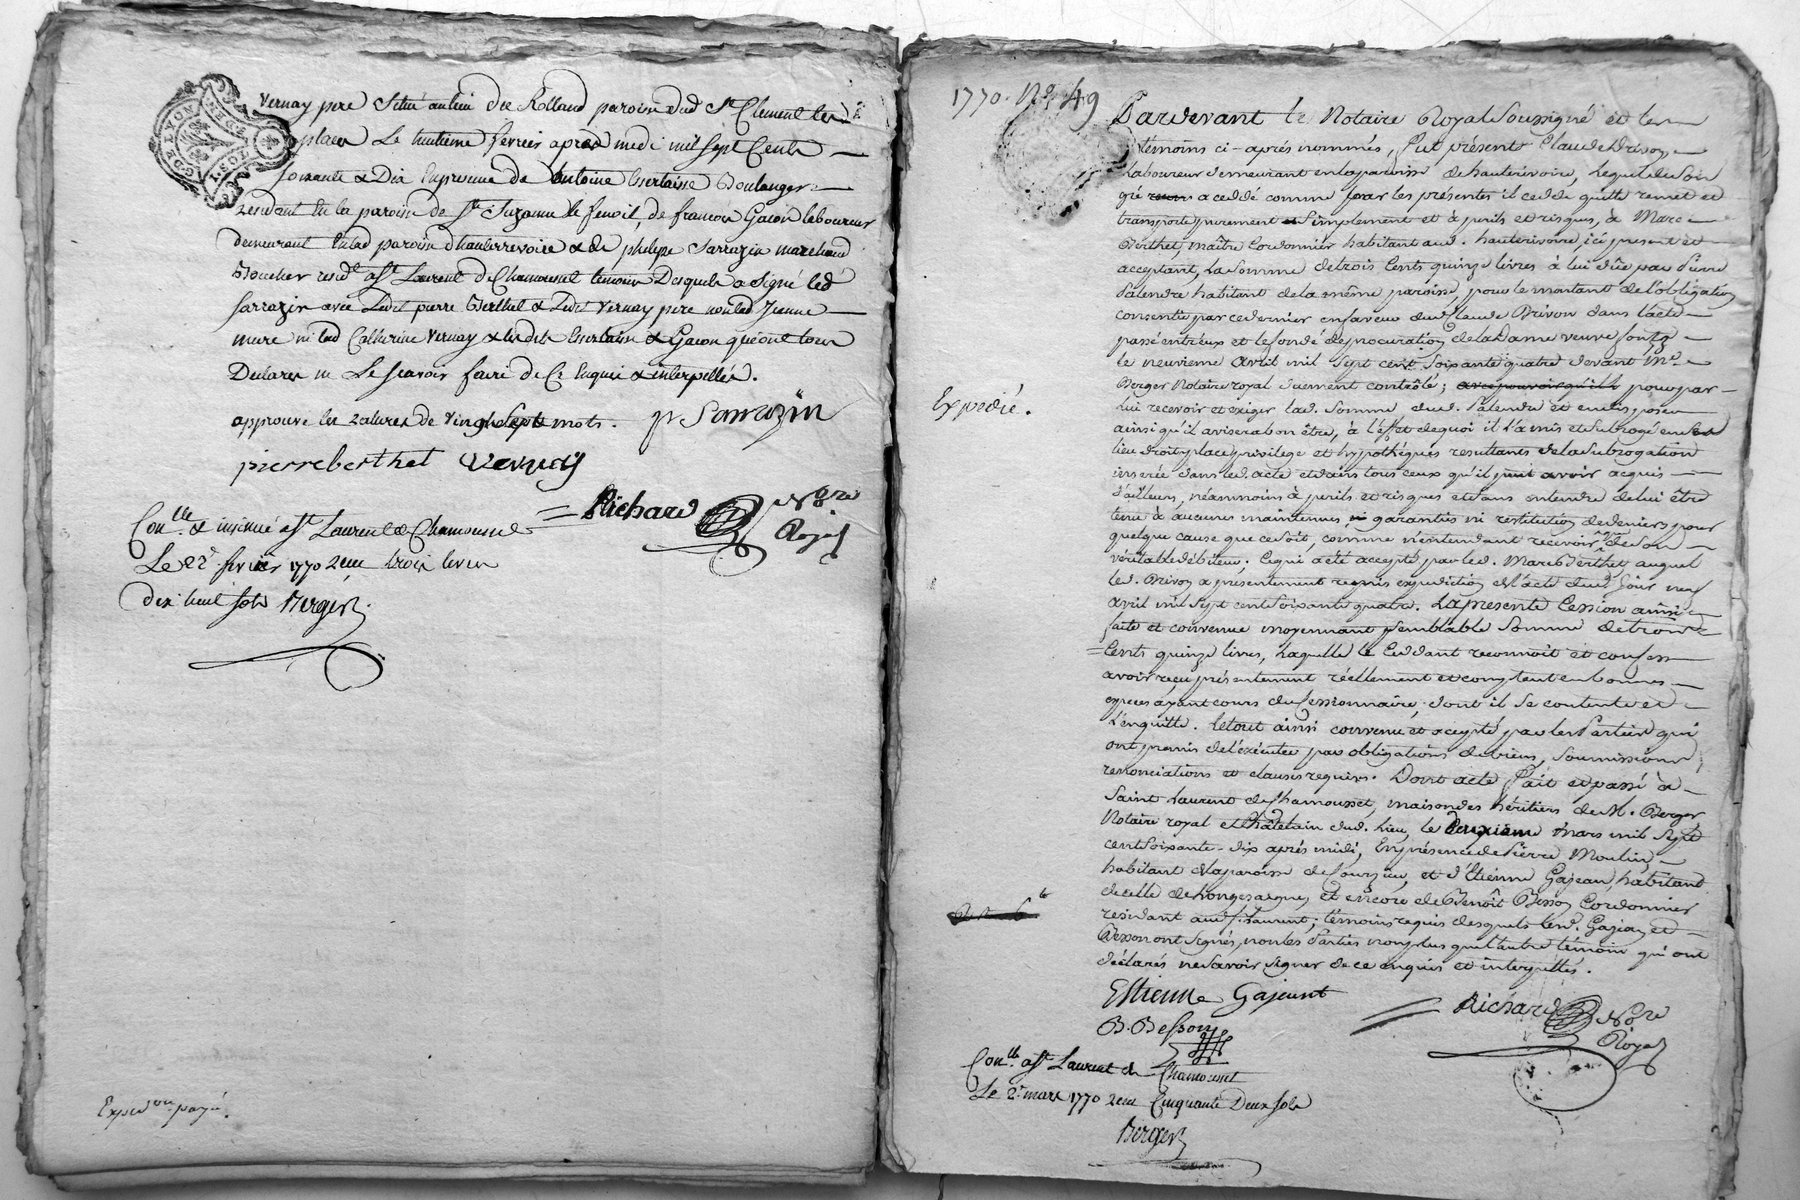 GEN. DE LYON
Vernay pere Situé au lieu de Rolland paroisse dud. St Clement les
places Le huitieme fevrier apres midi mil sept Cents
soixante & Dix En presence de Antoine Boulanger
Residant En la paroisse de Ste Suzanne de francois Gacon laboureur
demeurant En lad paroisse d'hauterrevoire & de philipe Sarrazin marchand
Boucher resdt a St Laurent de Chamousset temoins Desquels a signé led
Sarrazin avec Ledit pierre Berthet & Ledit Vernay pere non lad Jeanne
mure ni lad Catherine Vernay & lesdits & Gacon qui ont tous
Declarés ne Le scavoir faire de Ce Enquis & interpellés.
approuvé les ratures de vingt sept mots. p Sarrazin
pierre berthet Vernay
Richard Nore
Royal
Conllé & insinué a St Laurent de Chamousset
Le 22 fevrier 1770 Reçu trois livres
dix huit sols Berger
Expedon payé.
1770. No. 49
Pardevant le Notaire Royal Soussigné et les
témoins ci-après nommés, fut présent Claude Brivon
Laboureur demeurant en la paroisse de hauterivoire, Lequel de son
gré a ceddé comme par les présentes il cedde quitte remet et
transporte purement et simplement et à perils et risques, à Marc
Berthet, maître Cordonnier habitant aud. hauterivoire, ici présent et
acceptant, La somme de trois Cents quinze livres à lui dûe par Pierre
habitant de la même paroisse, pour le montant de l'obligation
consentie par ce dernier en faveur dud. Claude Brivon dans l'acte
passé entr'eux et le fondé de procuration de la Dame veuve
le neuvieme Avril mil sept cent soixante quatre devant Me
Berger Notaire royal duement contrôlé; avec pouvoir qu'il pour par
Lui recevoir et exiger lad. somme, dud. et en disposer
ainsi qu'il avisera bon être, à l'effet de quoi il l'a mis et subrogé en ses
lieu droit place privilege et hypothéques resultants de la subrogation
inserée dans led. acte et dans tous ceux qu'il peut avoir acquis
d'ailleurs, néanmoins à perils et risques et sans entendre de lui être
tenu à aucunes maintenues, ni garanties ni restitution de deniers pour
quelque cause que ce soit, comme n'entendant recevoir que de son
véritable débiteur. Ce qui a été accepté par led. Marc Berthet, auquel
led. Brivon a présentement remis expédition de l'acte dud. jour neuf
avril mil sept cent soixante quatre. La présente Cession ainsi
faite et convenue moyennant semblable somme de trois
Cents quinze livres, Laquelle le Ceddant reconnoit et confesse
avoir reçu présentement réellement et comptant en bonnes
espèces ayant cours du Cessionnaire, dont il se contente et
L'en quitte. Le tout ainsi convenu et accepté par les Parties qui
ont promis de l'exécuter par obligations de biens, soumissions,
renonciations et clauses requises. Dont acte Fait et passé à
Saint Laurent de Chamousset, maison des héritiers de M. Berger
Notaire royal et Châtelain dud. Lieu, le deuxième Mars mil sept
cent soixante-dix après midi, En présence de Pierre Moulin,
habitant de la paroisse de Courzieu, et d'Etienne Gajean, habitant
de celle de Longessaigne, et encore de Benoît Besson Cordonnier
residant aud. St Laurent, témoins requis desquels lesd. Gajean et
Besson ont signés, non les Parties non plus que l'autre témoin qui ont
déclarés ne savoir signer de ce enquis et interpellés.
Expedié.
Estienne Gajeant
B. Besson
Richard Nore
Royal
Conllé a St Laurent de Chamousset
Le 2 mars 1770 Reçu Cinquante Deux sols
Berger